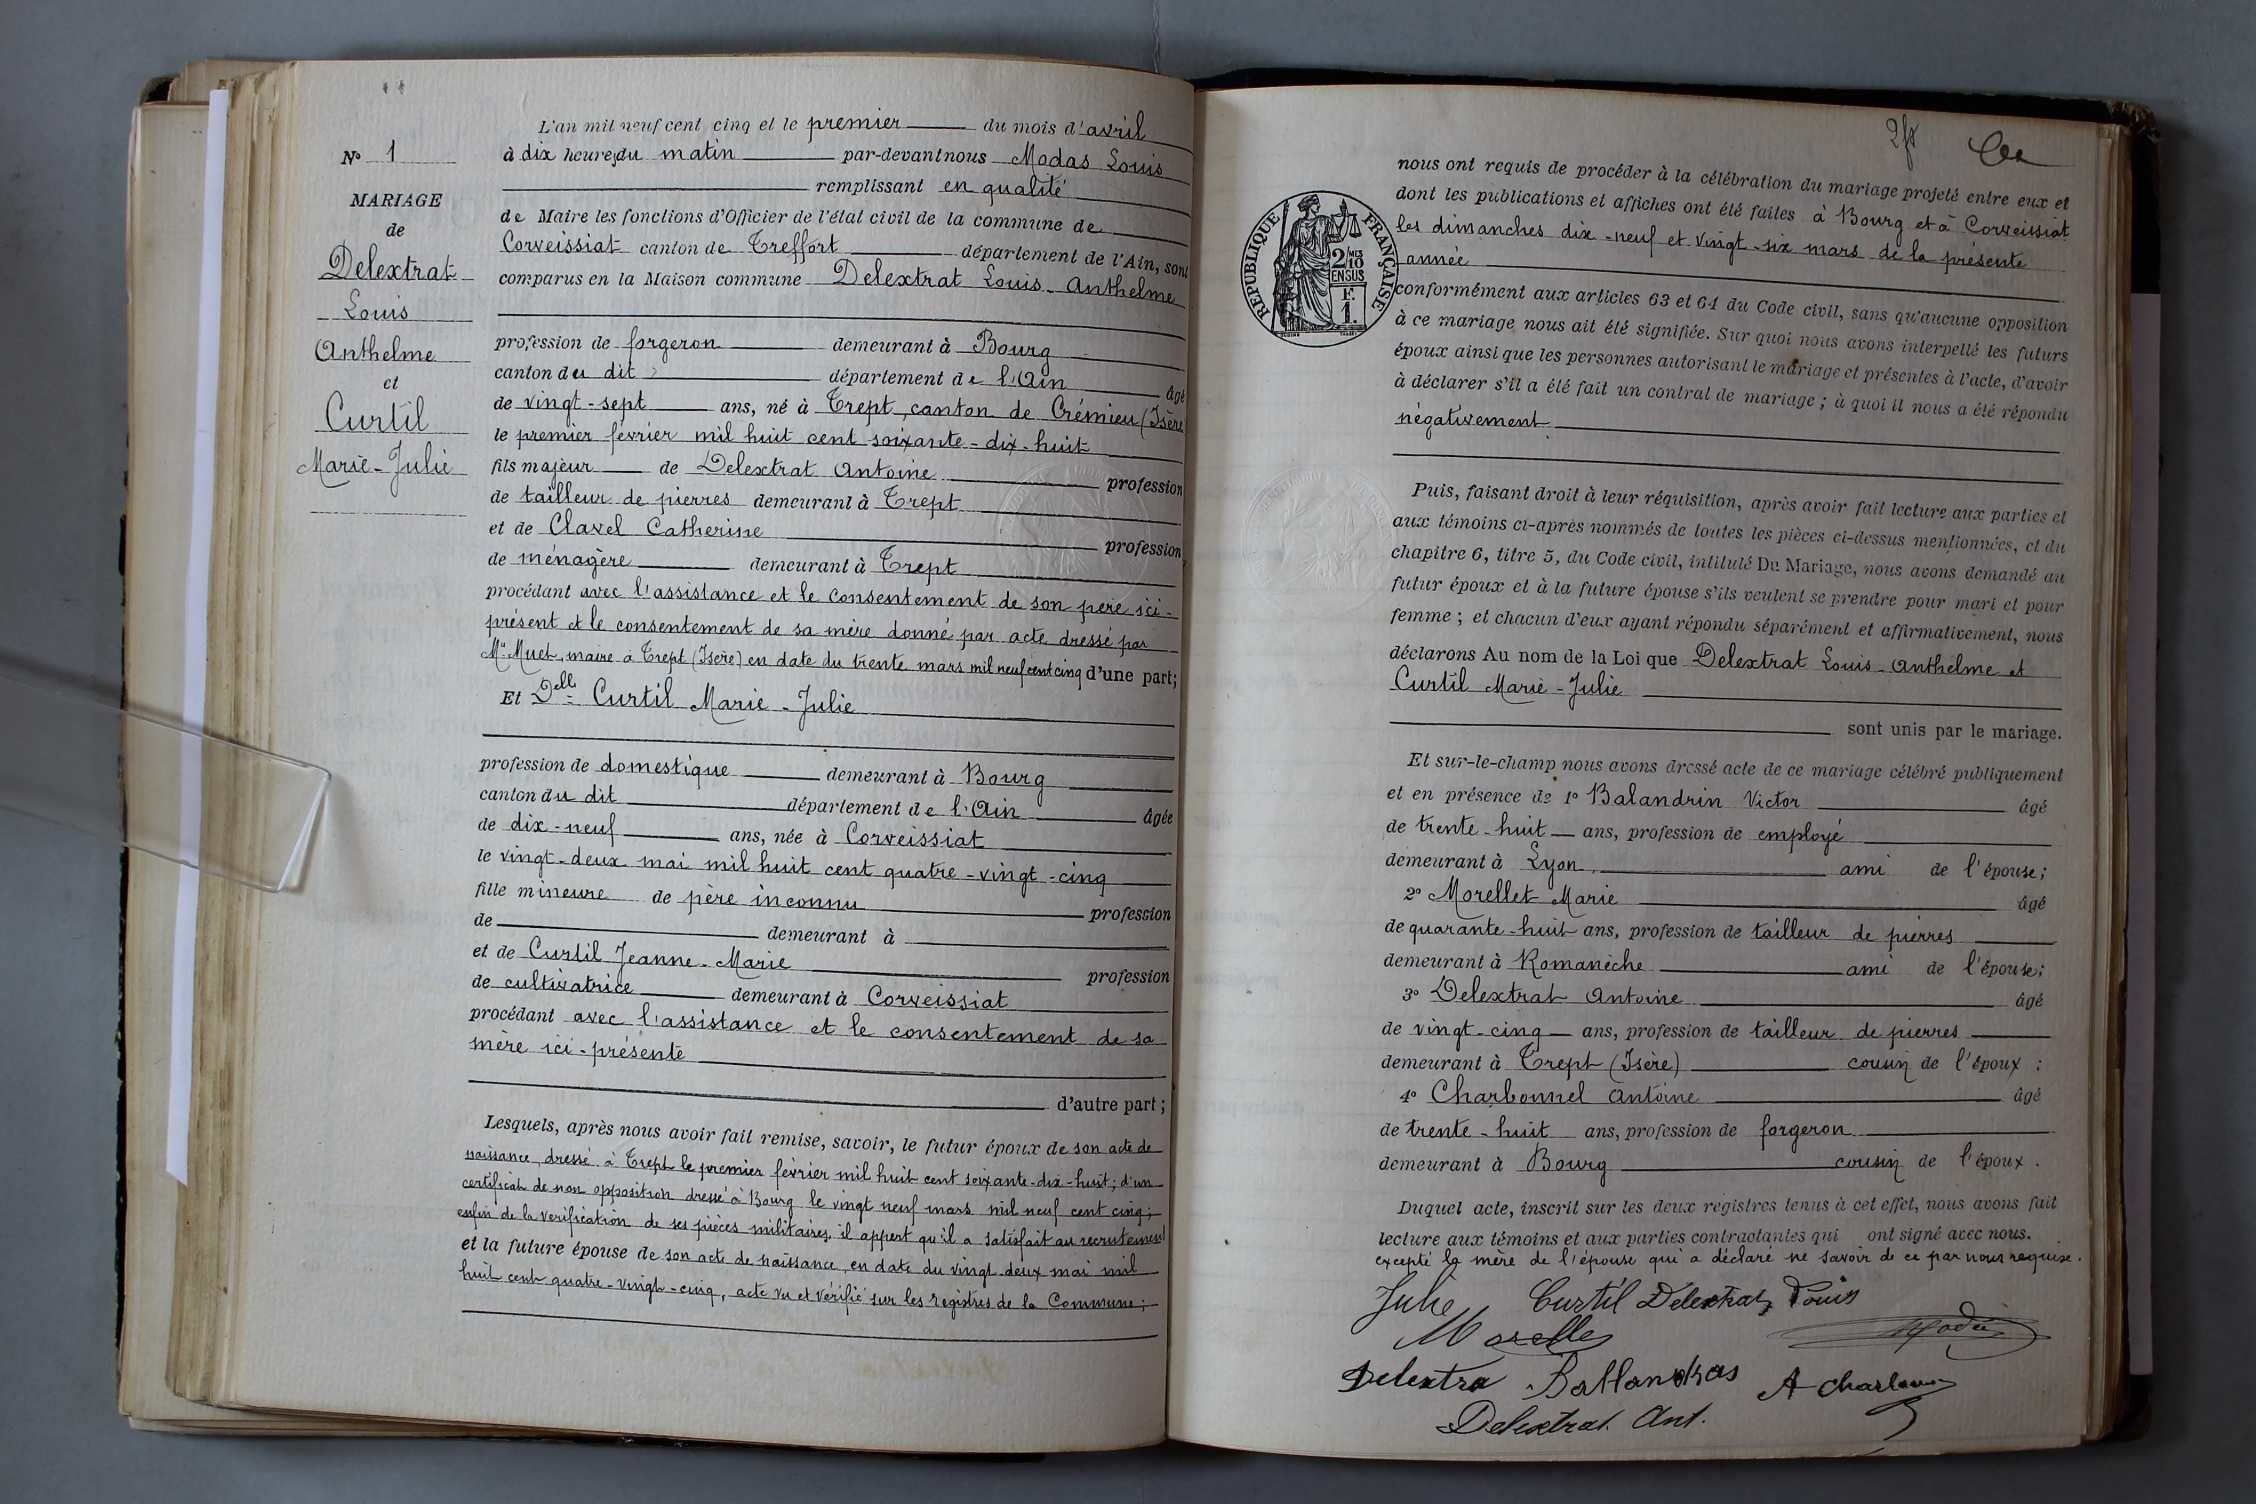 N° 1
MARIAGE
de
Delextrat
Louis
Anthelme
et
Curtil
Marie-Julie
L'an mil neuf cent cinq et le premier du mois d'avril
à dix heures du matin par-devant nous Modas Louis
remplissant en qualité
de Maire les fonctions d'Officier de l'état civil de la commune de
Corveissiat canton de Treffort département de l'Ain, sont
comparus en la Maison commune Delextrat Louis-Anthelme
profession de forgeron demeurant à Bourg
canton du dit département de l'Ain âgé
de vingt-sept ans, né à Trept, canton de Crémieu (Isère
le premier février mil huit cent soixante-dix-huit
fils majeur de Delextrat Antoine profession
de tailleur de pierres demeurant à Trept
et de Clavel Catherine profession
de ménagère demeurant à Trept
procédant avec l'assistance et le consentement de son père ici-
présent et le consentement de sa mère donné par acte dressé par
Mr Muet, maire à Trept (Isère) en date du trente mars mil neuf cent cinq d'une part;
Et Delle Curtil Marie-Julie
profession de domestique demeurant à Bourg
canton du dit département de l'Ain âgée
de dix-neuf ans, née à Corveissiat
le vingt-deux mai mil huit cent quatre-vingt-cinq
fille mineure de père inconnu profession
de demeurant à
et de Curtil Jeanne-Marie profession
de cultivatrice demeurant à Corveissiat
procédant avec l'assistance et le consentement de sa
mère ici-présente
d'autre part;
Lesquels, après nous avoir fait remise, savoir, le futur époux de son acte de
naissance, dressé à Trept le premier février mil huit cent soixante-dix-huit; d'un
certificat de non opposition dressé à Bourg le vingt neuf mars mil neuf cent cinq;
enfin de la vérification de ses pièces militaires, il appert qu'il a satisfait au recrutement
et la future épouse de son acte de naissance, en date du vingt-deux mai mil
huit cent quatre-vingt-cinq, acte vu et vérifié sur les registres de la Commune;
RÉPUBLIQUE FRANÇAISE
2/10 MES
EN SUS
F.
1.
nous ont requis de procéder à la célébration du mariage projeté entre eux et
dont les publications et affiches ont été faites à Bourg et à Corveissiat
les dimanches dix-neuf et vingt-six mars de la présente
année
conformément aux articles 63 et 64 du Code civil, sans qu'aucune opposition
à ce mariage nous ait été signifiée. Sur quoi nous avons interpellé les futurs
époux ainsi que les personnes autorisant le mariage et présentes à l'acte, d'avoir
à déclarer s'il a été fait un contrat de mariage; à quoi il nous a été répondu
négativement
Puis, faisant droit à leur réquisition, après avoir fait lecture aux parties et
aux témoins ci-après nommés de toutes les pièces ci-dessus mentionnées, et du
chapitre 6, titre 5, du Code civil, intitulé Du Mariage, nous avons demandé au
futur époux et à la future épouse s'ils veulent se prendre pour mari et pour
femme; et chacun d'eux ayant répondu séparément et affirmativement, nous
déclarons Au nom de la Loi que Delextrat Louis-Anthelme et
Curtil Marie-Julie
sont unis par le mariage.
Et sur-le-champ nous avons dressé acte de ce mariage célébré publiquement
et en présence de 1° Balandrin Victor âgé
de trente-huit ans, profession de employé
demeurant à Lyon ami de l'épouse;
2° Morellet Marie âgé
de quarante-huit ans, profession de tailleur de pierres
demeurant à Romanèche ami de l'épouse;
3° Delextrat Antoine âgé
de vingt-cinq ans, profession de tailleur de pierres
demeurant à Trept (Isère) cousin de l'époux:
4° Charbonnel Antoine âgé
de trente-huit ans, profession de forgeron
demeurant à Bourg cousin de l'époux.
Duquel acte, inscrit sur les deux registres tenus à cet effet, nous avons fait
lecture aux témoins et aux parties contractantes qui ont signé avec nous.
excepté la mère de l'épouse qui a déclaré ne savoir de ce par nous requise.
Julie Curtil Delextrat Louis
Morelle
Delextra A Charbon
Delextrat. Ant.